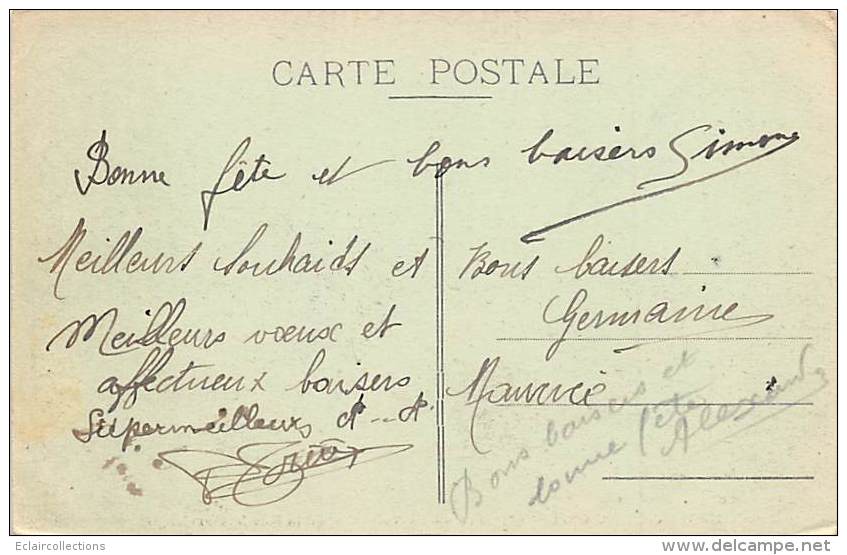 CARTE POSTALE
Bonne fête et bons baisers Simone
Meilleurs Souhaids et Bons baisers
Germaine
Meilleurs voeux et
affectueux baisers
Maurice
Supermeilleurs
Bons baisers et
bonne fête
Alexandre
Eclaircollections
www.delcampe.net